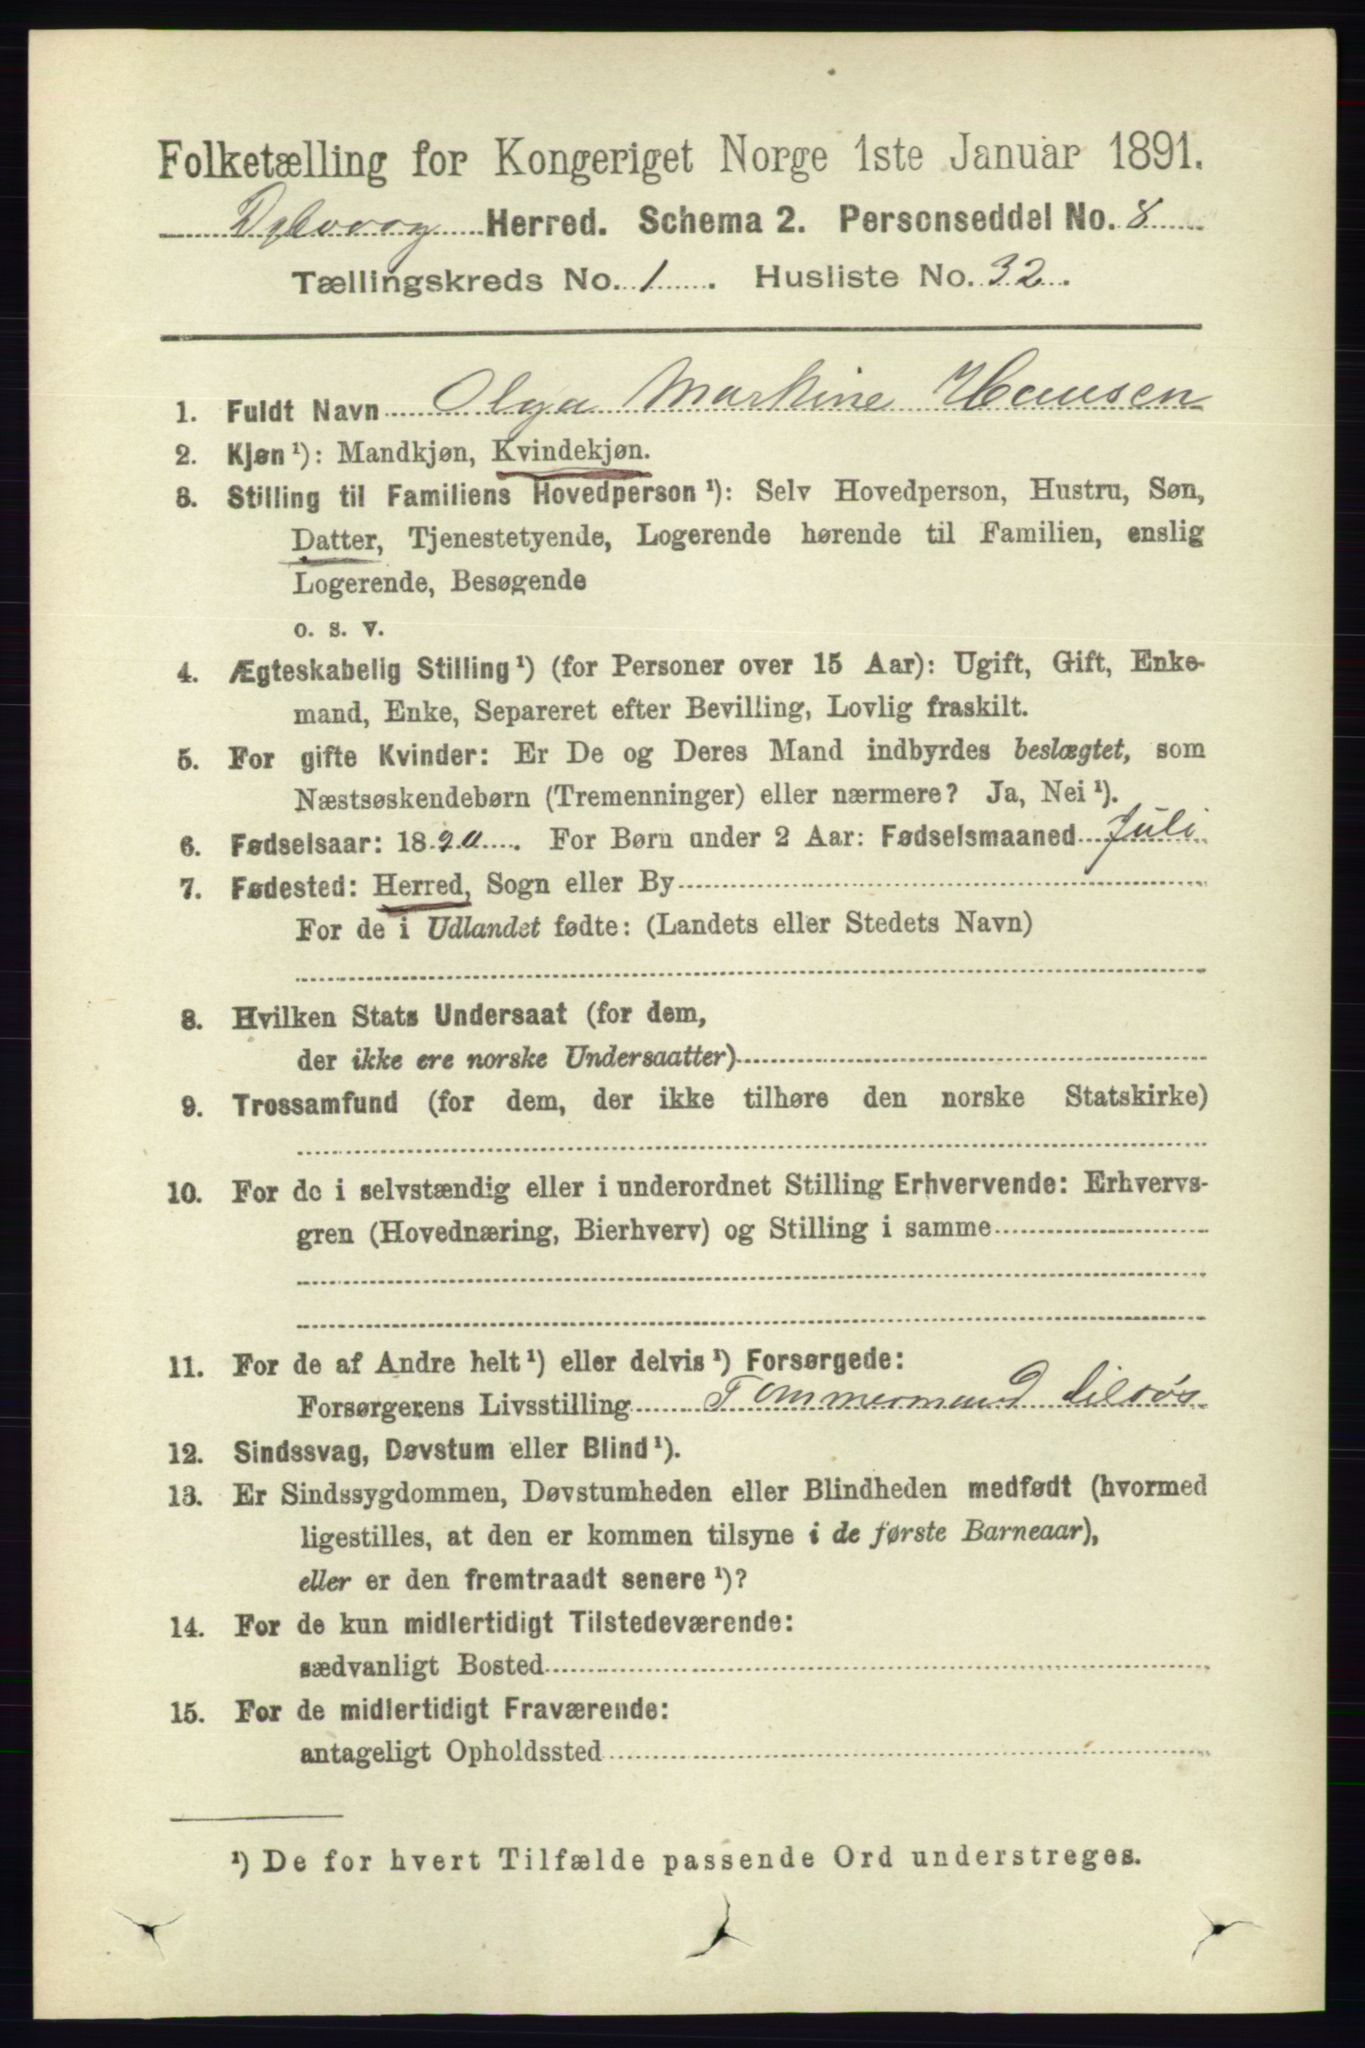 Folketælling for Kongeriget Norge 1ste Januar 1891.
Dybvaag Herred. Schema 2. Personseddel No. 8
Tællingskreds No. 1. Husliste No. 32.
1. Fuldt Navn Olga Martine Hansen
2. Kjøn¹): Mandkjøn, Kvindekjøn.
3. Stilling til Familiens Hovedperson¹): Selv Hovedperson, Hustru, Søn,
Datter, Tjenestetyende, Logerende hørende til Familien, enslig
Logerende, Besøgende
o. s. v.
4. Ægteskabelig Stilling¹) (for Personer over 15 Aar): Ugift, Gift, Enke-
mand, Enke, Separeret efter Bevilling, Lovlig fraskilt.
5. For gifte Kvinder: Er De og Deres Mand indbyrdes beslægtet, som
Næstsøskendebørn (Tremenninger) eller nærmere? Ja, Nei¹).
6. Fødselsaar: 1890. For Børn under 2 Aar: Fødselsmaaned Juli
7. Fødested: Herred, Sogn eller By
For de i Udlandet fødte: (Landets eller Stedets Navn)
8. Hvilken Stats Undersaat (for dem,
der ikke ere norske Undersaatter)
9. Trossamfund (for dem, der ikke tilhøre den norske Statskirke)
10. For de i selvstændig eller i underordnet Stilling Erhvervende: Erhvervs-
gren (Hovednæring, Bierhverv) og Stilling i samme
11. For de af Andre helt¹) eller delvis¹) Forsørgede:
Forsørgerens Livsstilling Tømmermand tilsøs
12. Sindssvag, Døvstum eller Blind¹).
13. Er Sindssygdommen, Døvstumheden eller Blindheden medfødt (hvormed
ligestilles, at den er kommen tilsyne i de første Barneaar),
eller er den fremtraadt senere¹)?
14. For de kun midlertidigt Tilstedeværende:
sædvanligt Bosted
15. For de midlertidigt Fraværende:
antageligt Opholdssted
¹) De for hvert Tilfælde passende Ord understreges.